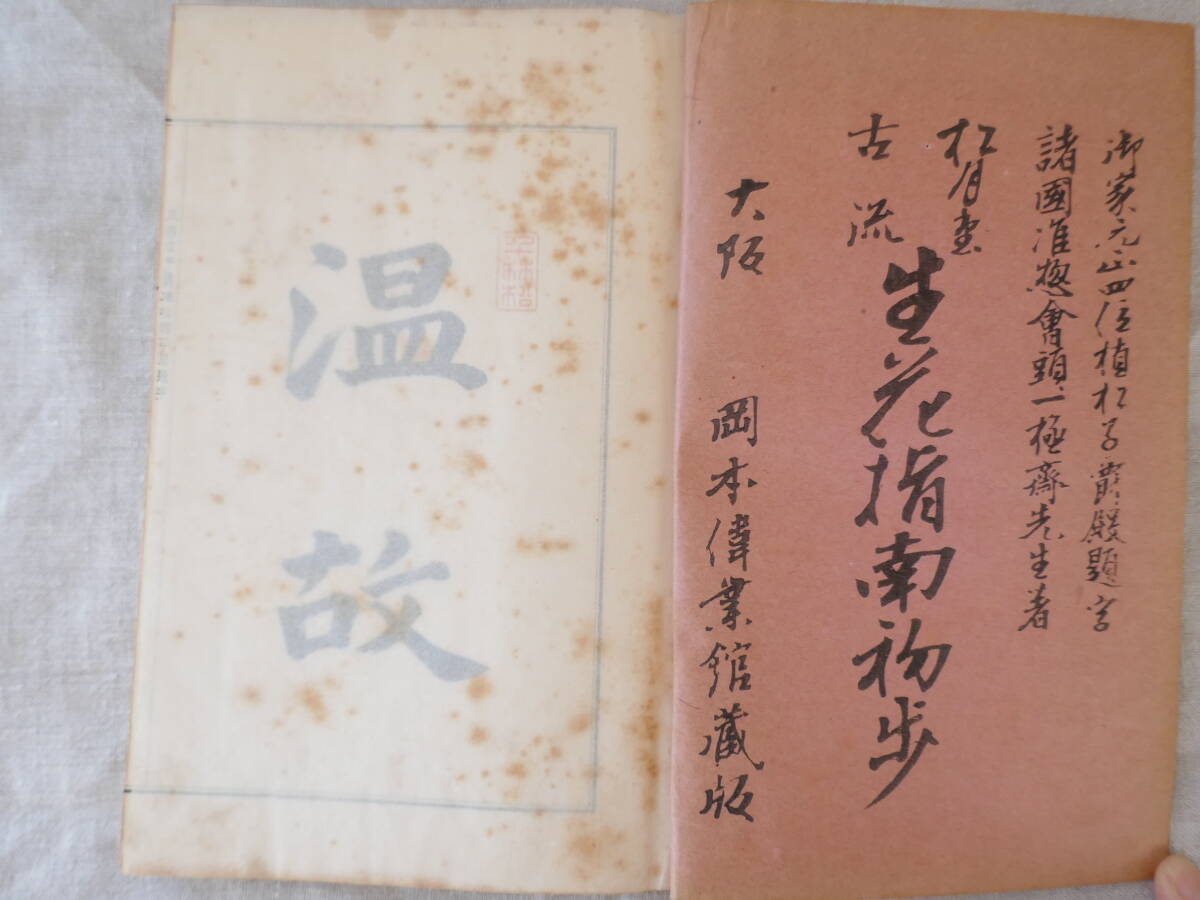 御家元正四位植松子爵殿題字
諸國准惣會頭一極齋先生著
松月堂
古流
生花指南初歩
大阪 岡本偉業館藏版
温
故